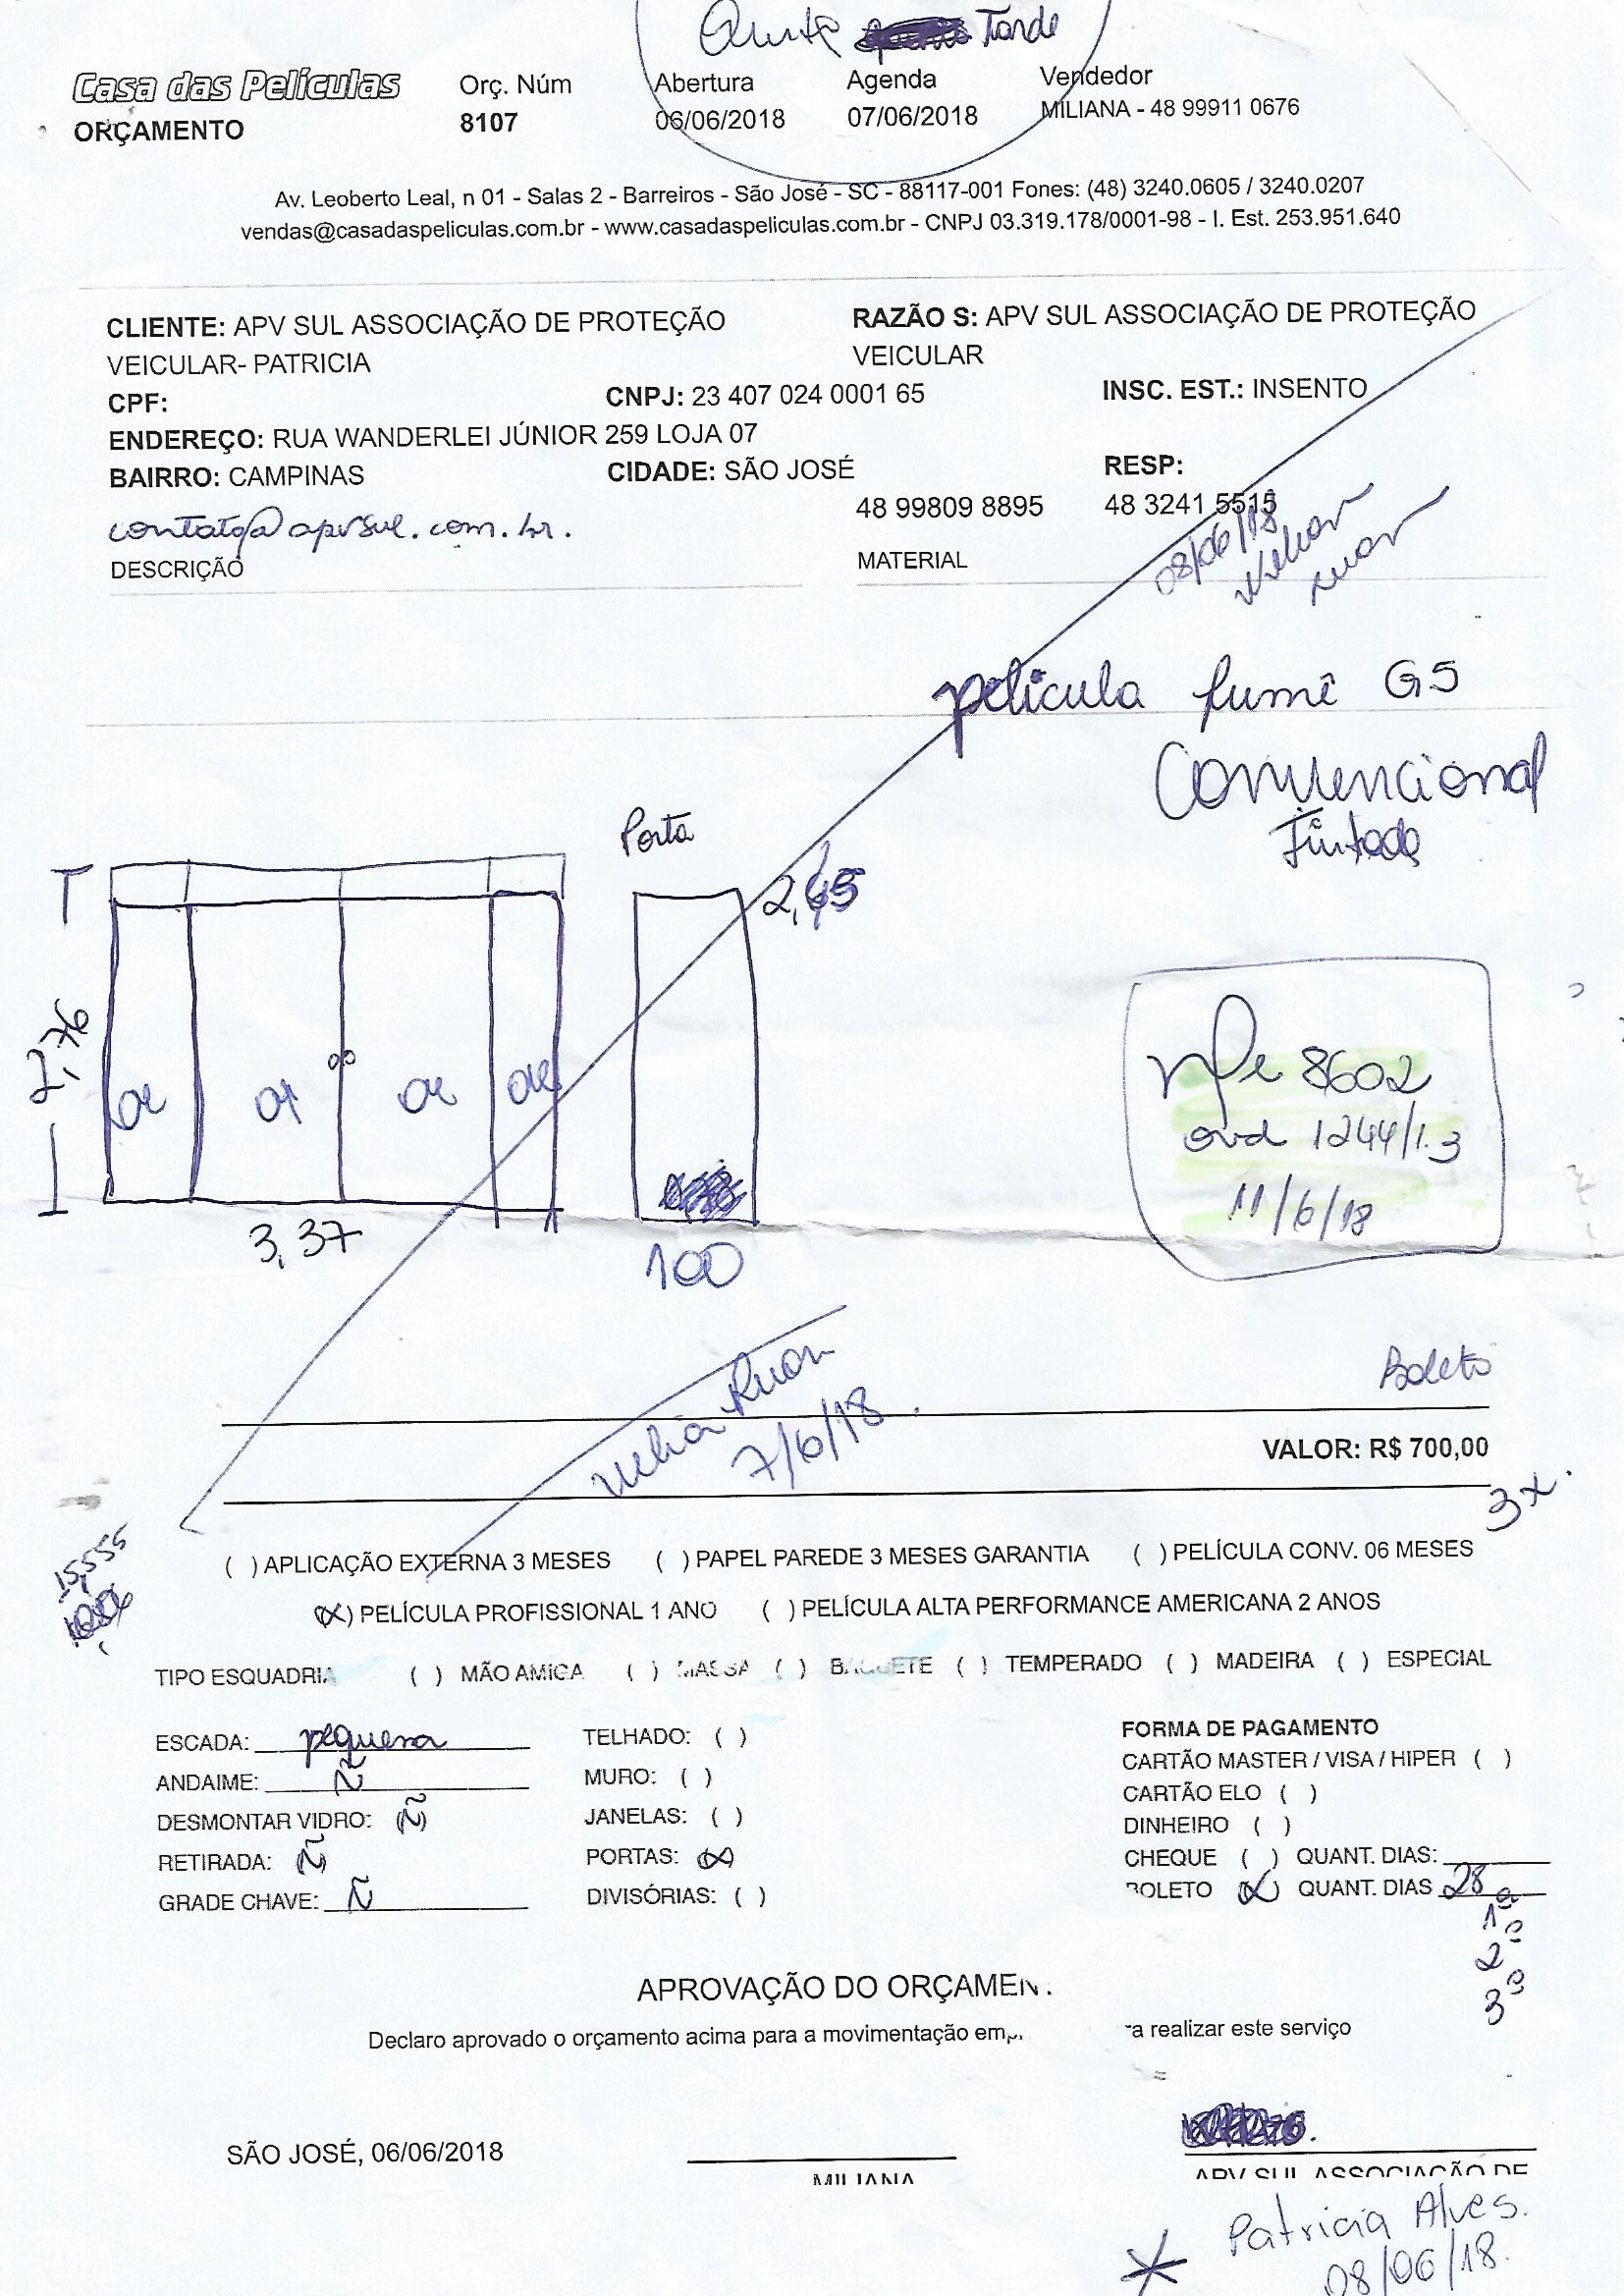 Quinta Tarde
Casa das Películas Orç. Núm Abertura Agenda Vendedor
ORÇAMENTO 8107 06/06/2018 07/06/2018 MILIANA - 48 99911 0676
Av. Leoberto Leal, n 01 - Salas 2 - Barreiros - São José - SC - 88117-001 Fones: (48) 3240.0605 / 3240.0207
vendas@casadaspeliculas.com.br - www.casadaspeliculas.com.br - CNPJ 03.319.178/0001-98 - I. Est. 253.951.640
CLIENTE: APV SUL ASSOCIAÇÃO DE PROTEÇÃO RAZÃO S: APV SUL ASSOCIAÇÃO DE PROTEÇÃO
VEICULAR- PATRICIA VEICULAR
CPF: CNPJ: 23 407 024 0001 65 INSC. EST.: INSENTO
ENDEREÇO: RUA WANDERLEI JÚNIOR 259 LOJA 07
BAIRRO: CAMPINAS CIDADE: SÃO JOSÉ RESP:
48 99809 8895 48 3241 5515
contato@apvsul.com.br.
DESCRIÇÃO MATERIAL
08/06/18
Ruan
película fumê G5
Convencional
Tintado
Porta
2,65
2,76
ok ok ok ok
3,37
100
nfe 8602
ord 1244/1.3
11/6/18
Ruan
7/6/18.
Boleto
VALOR: R$ 700,00
3x.
15,555
( ) APLICAÇÃO EXTERNA 3 MESES ( ) PAPEL PAREDE 3 MESES GARANTIA ( ) PELÍCULA CONV. 06 MESES
(X) PELÍCULA PROFISSIONAL 1 ANO ( ) PELÍCULA ALTA PERFORMANCE AMERICANA 2 ANOS
TIPO ESQUADRIA ( ) MÃO AMIGA ( ) MASSA ( ) BAGUETE ( ) TEMPERADO ( ) MADEIRA ( ) ESPECIAL
ESCADA: pequena TELHADO: ( ) FORMA DE PAGAMENTO
ANDAIME: Ñ MURO: ( ) CARTÃO MASTER / VISA / HIPER ( )
DESMONTAR VIDRO: (Ñ) JANELAS: ( ) CARTÃO ELO ( )
DINHEIRO ( )
RETIRADA: (Ñ) PORTAS: (X) CHEQUE ( ) QUANT. DIAS:
GRADE CHAVE: Ñ DIVISÓRIAS: ( ) BOLETO (X) QUANT. DIAS 28
1ª
2ª
3ª
APROVAÇÃO DO ORÇAMEN
Declaro aprovado o orçamento acima para a movimentação em ra realizar este serviço
SÃO JOSÉ, 06/06/2018
MILIANA APV SUL ASSOCIAÇÃO DE
Patricia Alves.
08/06/18.